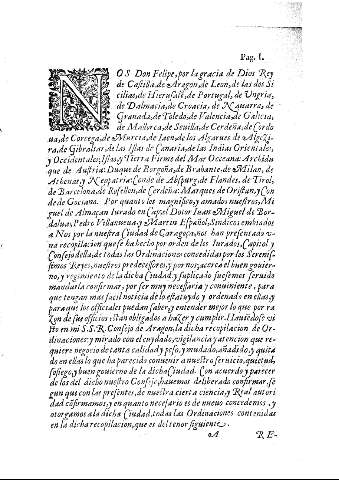 Pag. 1.
NOS Don Felipe, por la gracia de Dios Rey
de Castilla, de Aragon, de Leon, de las dos Si
cilias, de Hierusalẽ, de Portugal, de Vngria,
de Dalmacia, de Croacia, de Nauarra, de
Granada, de Toledo, de Valencia, de Galicia,
de Mallorca, de Seuilla, de Cerdeña, de Cordo
ua, de Corcega, de Murcia, de Iaen, de los Algarues, de Algezi-
ra, de Gibraltar, de las Islas de Canaria, de las Indias Orientales,
y Occidentales, Islas, y Tierra Firme del Mar Oceano: Archidu
que de Austria: Duque de Borgoña, de Brabante, de Milan, de
Athenas, y Neopatria: Conde de Abspurg, de Flandes, de Tirol,
de Barcelona, de Rosellon, de Cerdeña: Marques de Oristan, y Con
de de Goceano. Por quanto los magnificos, y amados nuestros, Mi
guel de Almaçan Iurado en Cap, el Dotor Iuan Miguel de Bor-
dalua, Pedro Villanueua, y Martin Español, Sindicos embiados
a Nos por la nuestra Ciudad de Caragoça, nos han presentado v-
na recopilacion que se ha hecho por orden de los Iurados, Capitol y
Consejo della, de todas las Ordinaciones concedidas por los Serenis-
simos Reyes, nuestros predecessores, y por nos, acerca el buen gouier-
no, y regimiento de la dicha Ciudad, y suplicado fuessemos seruido
mandarla confirmar, por ser muy necessaria, y conuiniente, para
que tengan mas facil noticia de lo estatuydo y ordenado en ellas, y
para que los officiales puedan saber, y entender mejor lo que por ra
zon de sus officios estan obligados a hazer y cumplir. Hauiẽdose vi
sto en mi S. S. R. Consejo de Aragon, la dicha recopilacion de Or-
dinaciones: y mirado con el cuydado, vigilancia y atencion que re-
quiere negocio de tanta calidad y peso, y mudado, añadido, y quita
do en ellas lo que ha parecido conuenir a nuestro seruicio, quietud,
sosiego, y buen gouierno de la dicha Ciudad. Con acuerdo y parecer
de los del dicho nuestro Consejo, hauemos deliberado confirmar, se
gun que con las presentes, de nuestra cierta sciencia, y Real autori
dad cõfirmamos, y en quanto necesario es de nueuo concedemos, y
otorgamos a la dicha Ciudad, todas las Ordinaciones contenidas
en la dicha recopilacion, que es del tenor siguiente.
A RE-